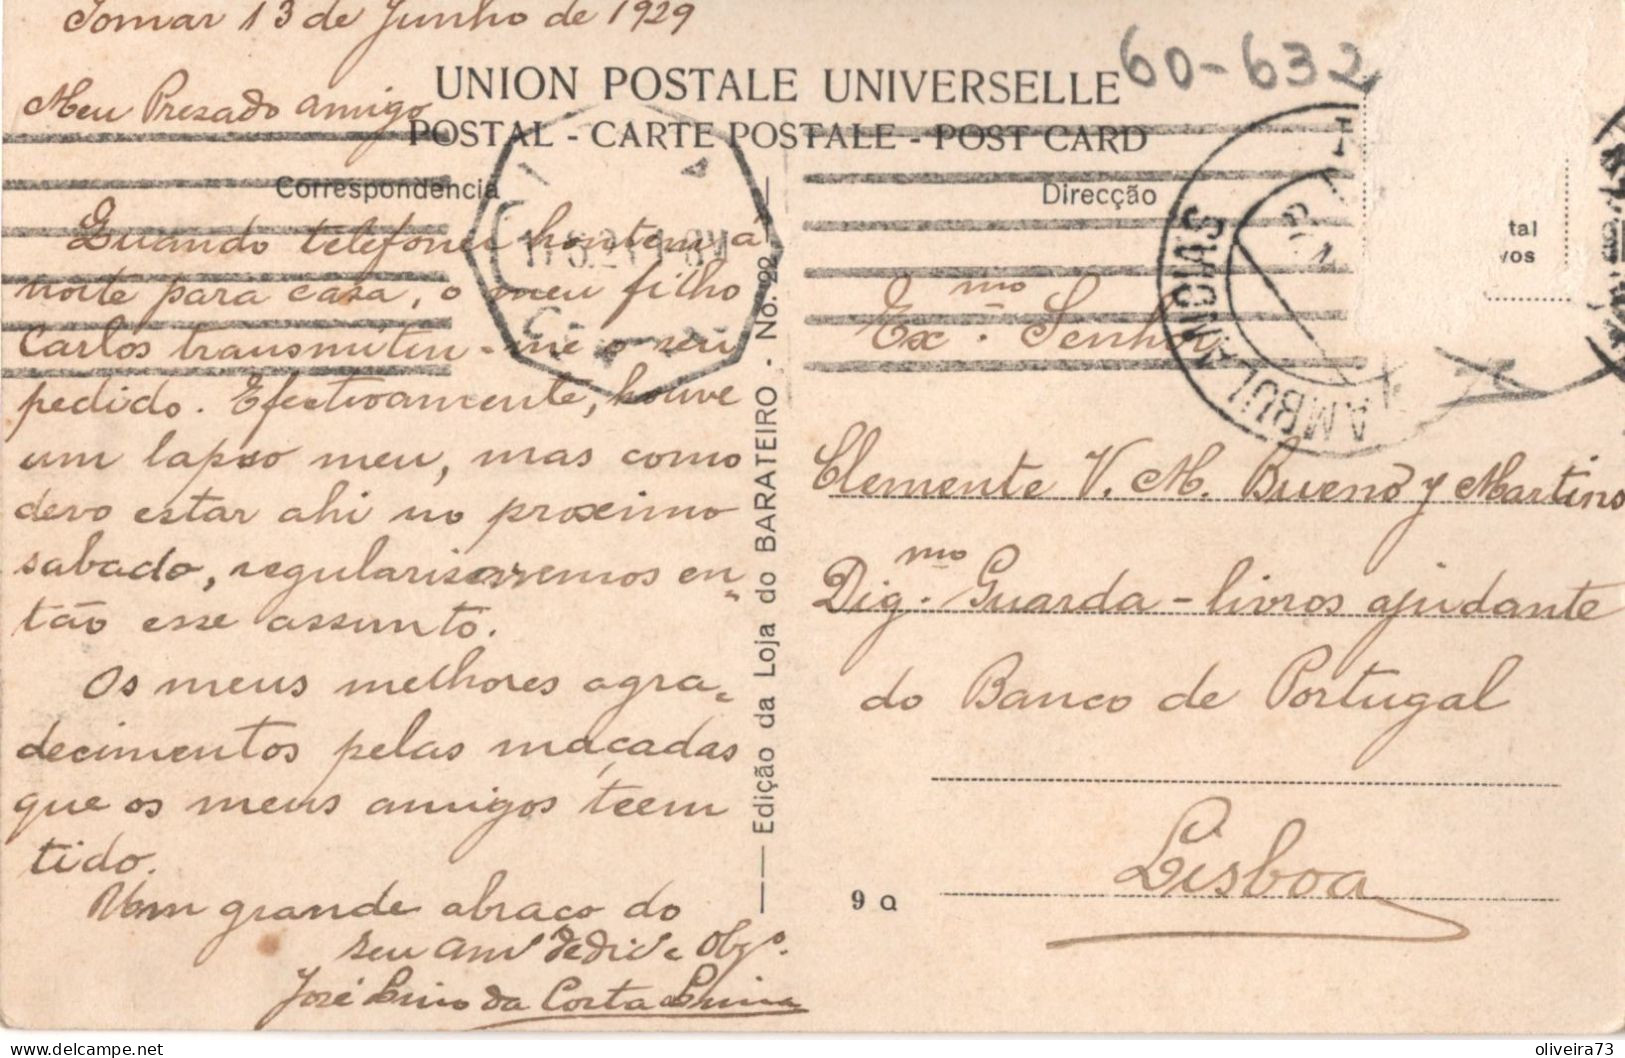 Tomar 13 de Junho de 1929
60-632
UNION POSTALE UNIVERSELLE
POSTAL - CARTE POSTALE - POST CARD
Meu Prezado amigo
Correspondencia
Quando telefonei hontem á
noite para casa, o meu filho
Carlos transmitiu-me o seu
pedido. Efectivamente, houve
um lapso meu, mas como
devo estar ahi no proximo
sabado, regularisaremos en-
tão esse assunto.
Os meus melhores agra-
decimentos pelas maçadas
que os meus amigos teem
tido.
Um grande abraço do
seu amº dedicº e Obgº.
José da Costa
Edição da Loja do BARATEIRO - No. 22
Direcção
tal
vos
AMBULANCIAS
Exmo. Senhor
Clemente V. M. Bueno y Martino
Digmo. Guarda-livros ajudante
do Banco de Portugal
Lisboa
9 Q
oliveira73